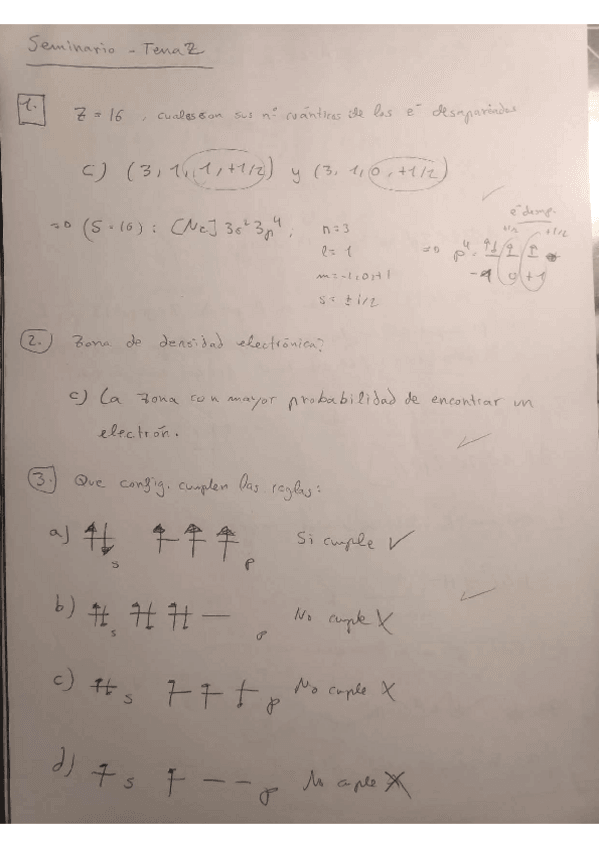 Seminario - Tema 2
1. Z = 16, cuales son sus nº cuánticos de los e⁻ desapariados
c) (3, 1, 1, +1/2) y (3, 1, 0, +1/2)
=> (S = 16) : [Ne] 3s² 3p⁴,
n = 3
l = 1
m = -1, 0, +1
s = ± 1/2
e⁻ desap.
+1/2
=> p⁴: ↑↓ ↑ ↑
-1 0 +1
2. Zona de densidad electrónica?
c) La zona con mayor probabilidad de encontrar un
electrón.
3. Que config. cumplen las reglas:
a) s p Si cumple ✓
b) s p No cumple X
c) s p No cumple X
d) s p No cumple X